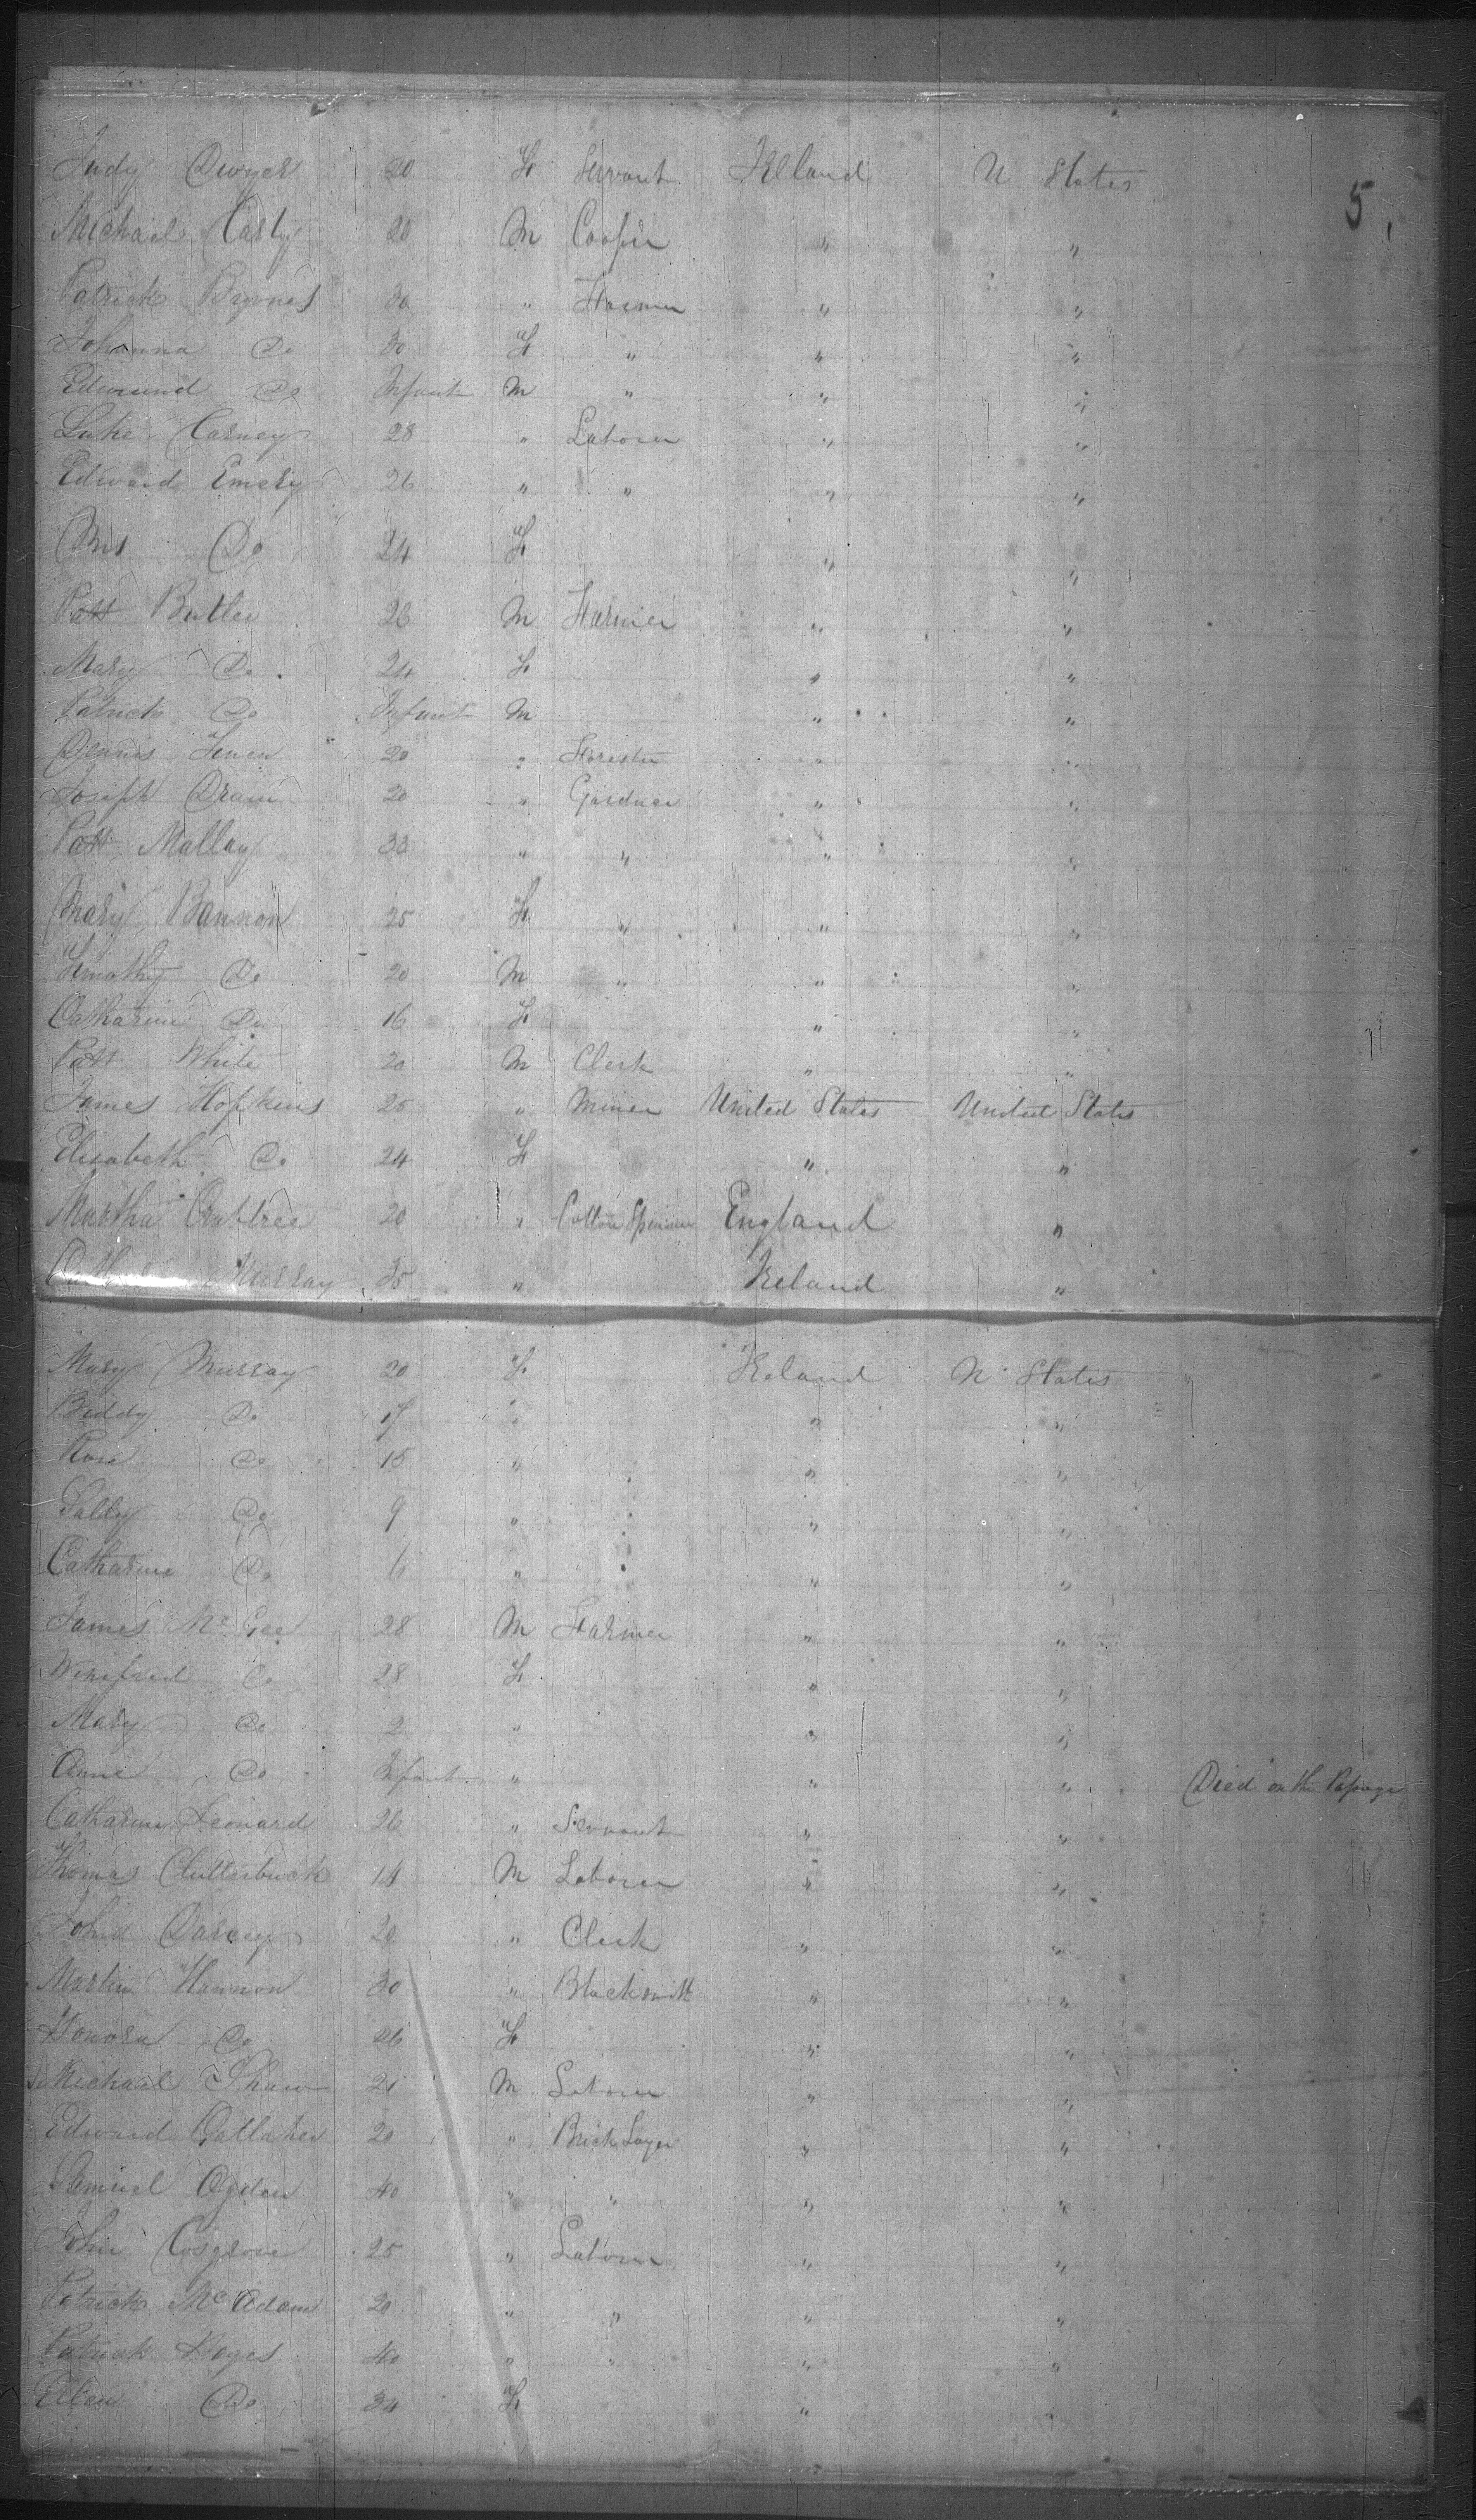 Judy Dwyer 20 F Servant Ireland U States
5,
Michael Carty 20 M Cooper " "
Patrick Byrnes 30 " Farmer " "
Johanna Do 30 F " " "
Edmund Do Infant M " " "
Luke Carney 28 " Laborer " "
Edward Emery 26 " " " "
Mrs Do 24 F " "
Patt Butler 26 M Farmer " "
Mary Do 24 F " "
Patrick Do Infant M " "
Dennis 20 " Forester " "
Joseph Drain 20 " Gardner " "
Patt Mallay 33 " " " "
Mary Bannon 25 F " " "
Timothy Do 20 M " " "
Catharine Do 16 F " "
Patt White 20 M Clerk " "
James Hopkins 25 " Miner United States United States
Elizabeth Do 24 F " "
Martha Crabtree 20 " Cotton Spinner England "
Murray 35 " Ireland "
Mary Murray 20 F Ireland U States
Biddy Do 17 " " "
Rose Do 15 " " "
Sally Do 9 " " "
Catharine Do 6 " " "
James Mc Gee 28 M Farmer " "
Winifred Do 28 F " "
Mary Do 2 " " "
Anne Do Infant " " " Died on the Passage
Catharine Leonard 26 " Servant " "
Thomas Clutterbuck 14 M Laborer " "
John Darcey 20 " Clerk " "
Martin Hannon 30 " Blacksmith " "
Honora Do 26 F " "
Michael Shaw 21 M Laborer " "
Edward Gallaher 20 " Brick Layer " "
Samuel Ogden 40 " " " "
John Cosgrove 25 " Laborer " "
Patrick Mc Adam 20 " " " "
Patrick Hayes 40 " " " "
Ellen Do 34 F " "